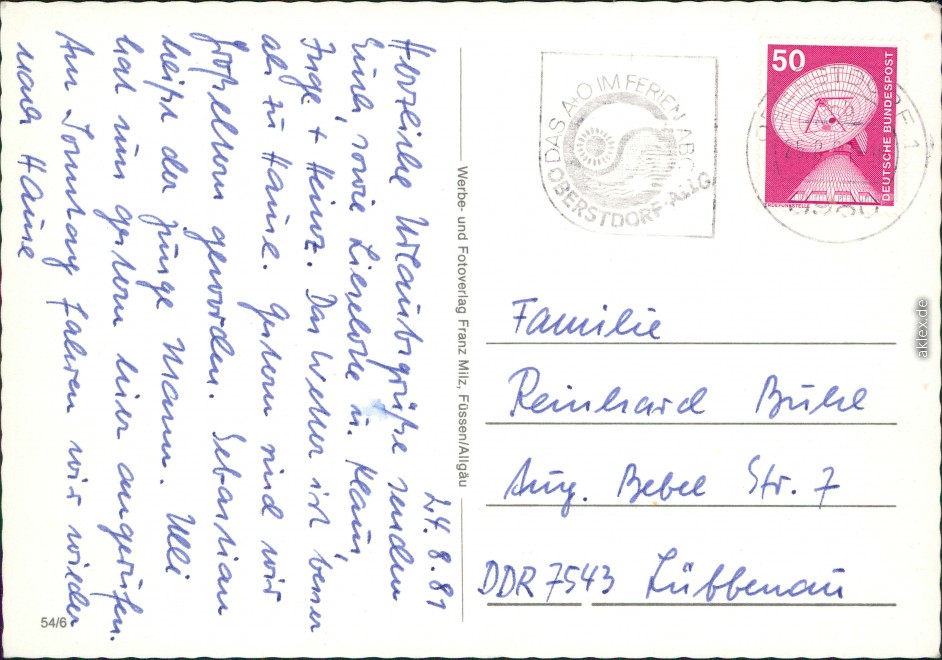 24.8.81
Herzliche Urlaubsgrüße senden
Euch, sowie Lieselotte u. Klaus,
Inge + Heinz. Das Wetter ist besser
als zu Hause. Gestern sind wir
Großeltern geworden. Sebastian
heißt der junge Mann. Ulli
hat uns gestern hier angerufen.
Am Sonntag fahren wir wieder
nach Hause
54/6
Werbe- und Fotoverlag Franz Milz, Füssen/Allgäu
DAS A+O IM FERIEN-ABC
OBERSTDORF·ALLG.
50
DEUTSCHE BUNDESPOST
ERDEFUNKSTELLE
8980
Familie
Reinhard Buhl
Aug. Bebel Str. 7
DDR 7543 Lübbenau
aklex.de